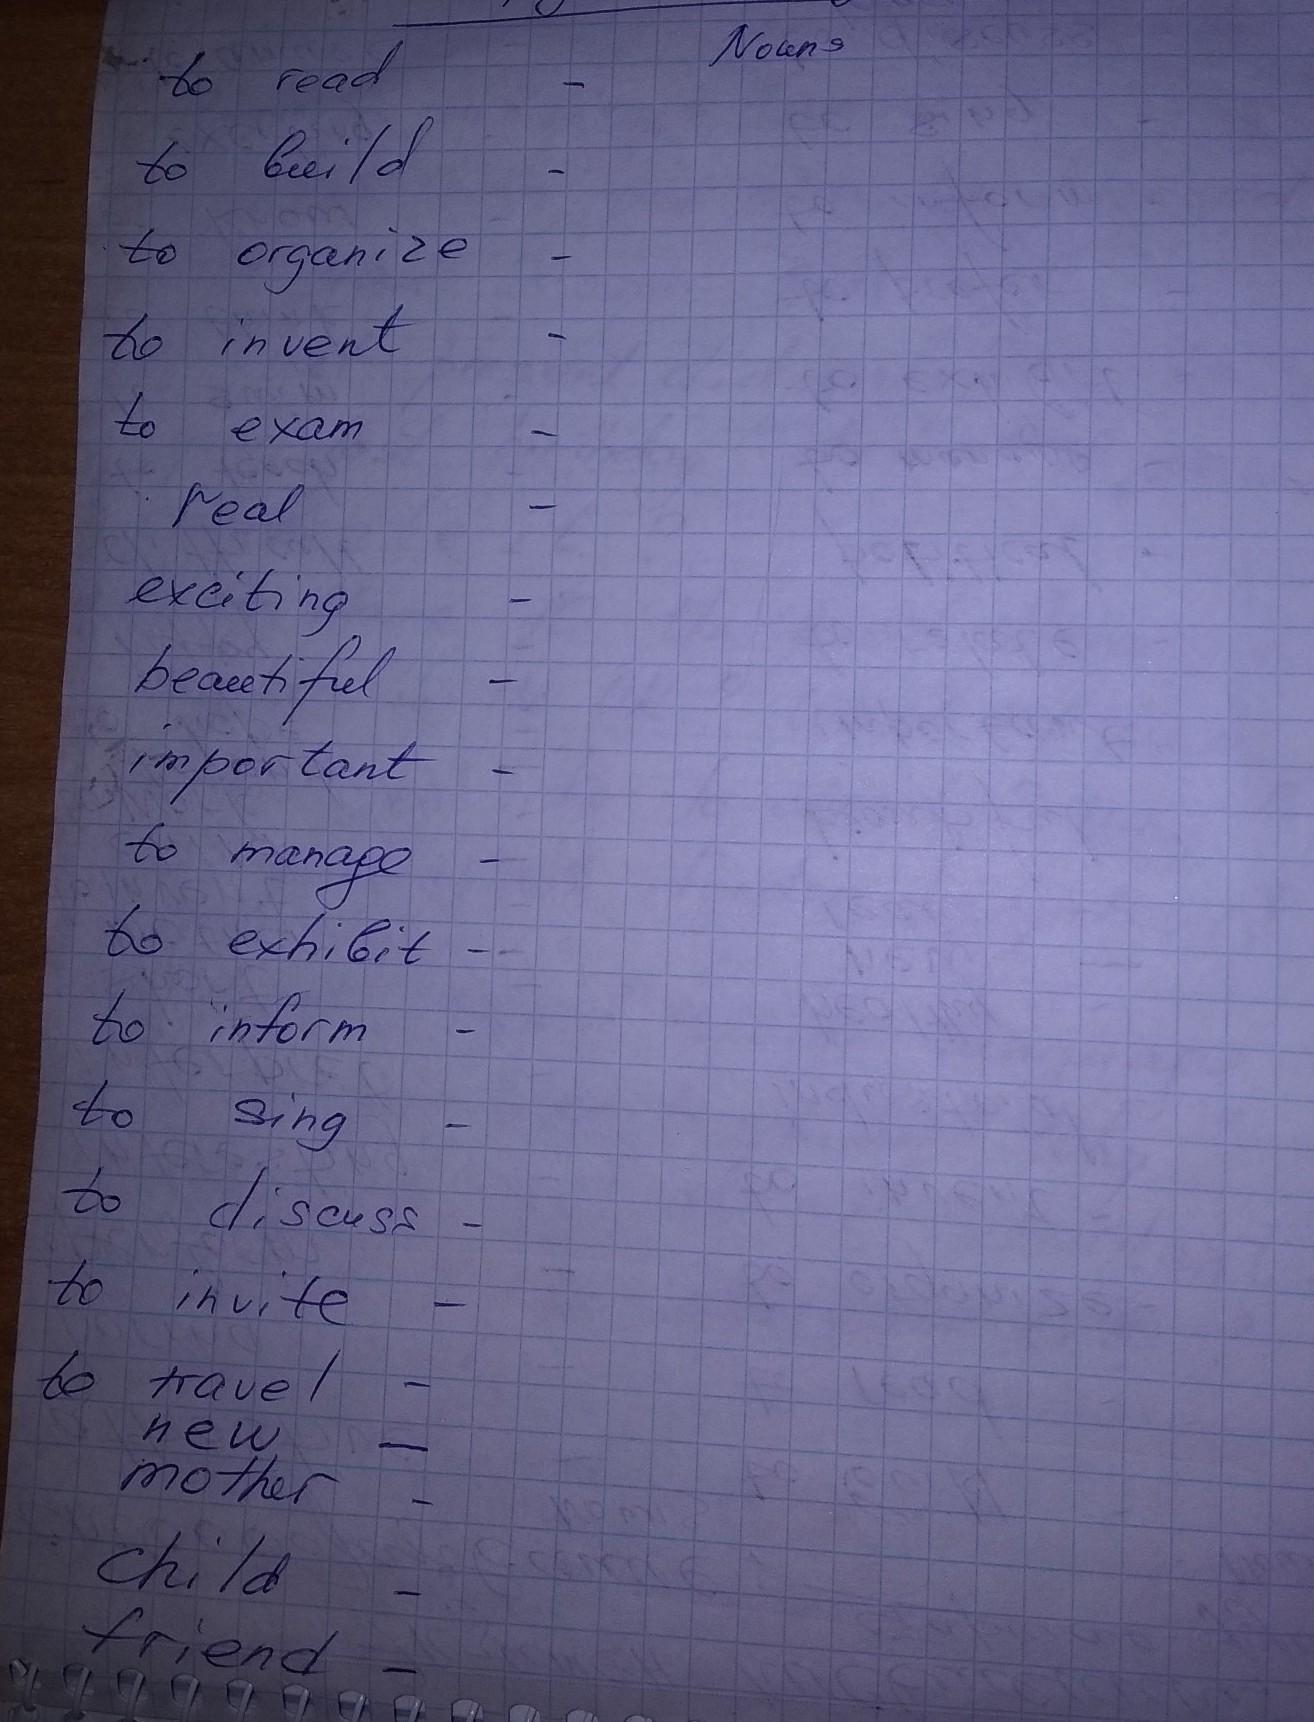 Nouns
to read -
to build -
to organize -
to invent -
to exam -
real -
exciting -
beautiful -
important -
to manage -
to exhibit --
to inform -
to sing -
to discuss -
to invite -
to travel -
new —
mother -
child -
friend -